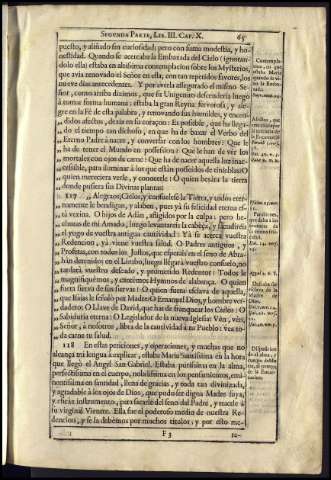 SEGUNDA PARTE, LIB. III. CAP. X. 65
puesto, y aliñado sin curiosidad; pero con suma modestia, y ho-
nestidad. Quando se acercaba la Embaxada del Cielo (ignoran-
dolo ella) estaba en altissima contemplacion sobre los Mysterios,
que avia renovado el Señor en ella, con tan repetidos favores, los
nueve dias antecedentes. Y por averla assegurado el mismo Se-
ñor, como arriba diximos, que su Unigenito descenderia luego
à tomar forma humana; estaba la gran Reyna fervorosa, y ale-
gre en la Fè de esta palabra, y renovando sus humildes, y encendi-
dos afectos, dezia en su coraçon: Es posible, que ha llega-
do el tiempo tan dichoso, en que ha de baxar el Verbo del
Eterno Padre à nacer, y conversar con los hombres: Que le
ha de tener el Mundo en possession: Que le han de ver los
mortales con ojos de carne: Que ha de nacer aquella luz inac-
cessible, para iluminar à los que estàn posseìdos de tinieblas: O
quien mereciera verle, y conocerle: O quien besàra la tierra
donde pusiera sus Divinas plantas:
117 Alegraos, Cielos, y consuelese la Tierra, y todos eter-
namente le bendigan, y alaben, pues ya su felicidad eterna es-
tà vezina. O hijos de Adàn, afligidos por la culpa; pero he-
chura de mi Amado, luego levantareis la cabeça, y sacudireis
el yugo de vuestra antigua cautividad: Yà se acerca vuestra
Redencion, yà viene vuestra salud. O Padres antiguos, y
Profetas, con todos los Justos, que esperais en el seno de Abra-
hàn detenidos en el Limbo, luego llegarà vuestro consuelo, no
tardarà vuestro deseado, y prometido Redentor: Todos le
magnifiquemos, y cantemos Hymnos de alabança. O quien
fuera sierva de sus siervas: O quien fuera esclava de aquella,
que Isaias le señalò por Madre: O Emanuel Dios, y hombre ver-
dadero: O Llave de David, que has de franquear los Cielos: O
Sabiduria eterna: O Legislador de la nueva Iglesia: Vèn, vèn,
Señor, à nosotros, libra de la cautividad à tu Pueblo: vea to-
da carne tu salud.
118 En estas peticiones, y operaciones, y muchas que no
alcança mi lengua à explicar, estaba Maria Santissima en la hora
que llegò el Angel San Gabriel. Estaba purissima en la alma,
perfectissima en el cuerpo, nobilissima en los pensamientos, emi-
nentissima en santidad, llena de gracias, y toda tan divinizada,
y agradable à los ojos de Dios, que pudo ser digna Madre suya,
y eficàz instrumento, para sacarle del seno del Padre, y traerle à
su virginal Vientre. Ella fue el poderoso medio de nuestra Re-
dencion, y se la debemos por muchos titulos; y por esto me-
F 3